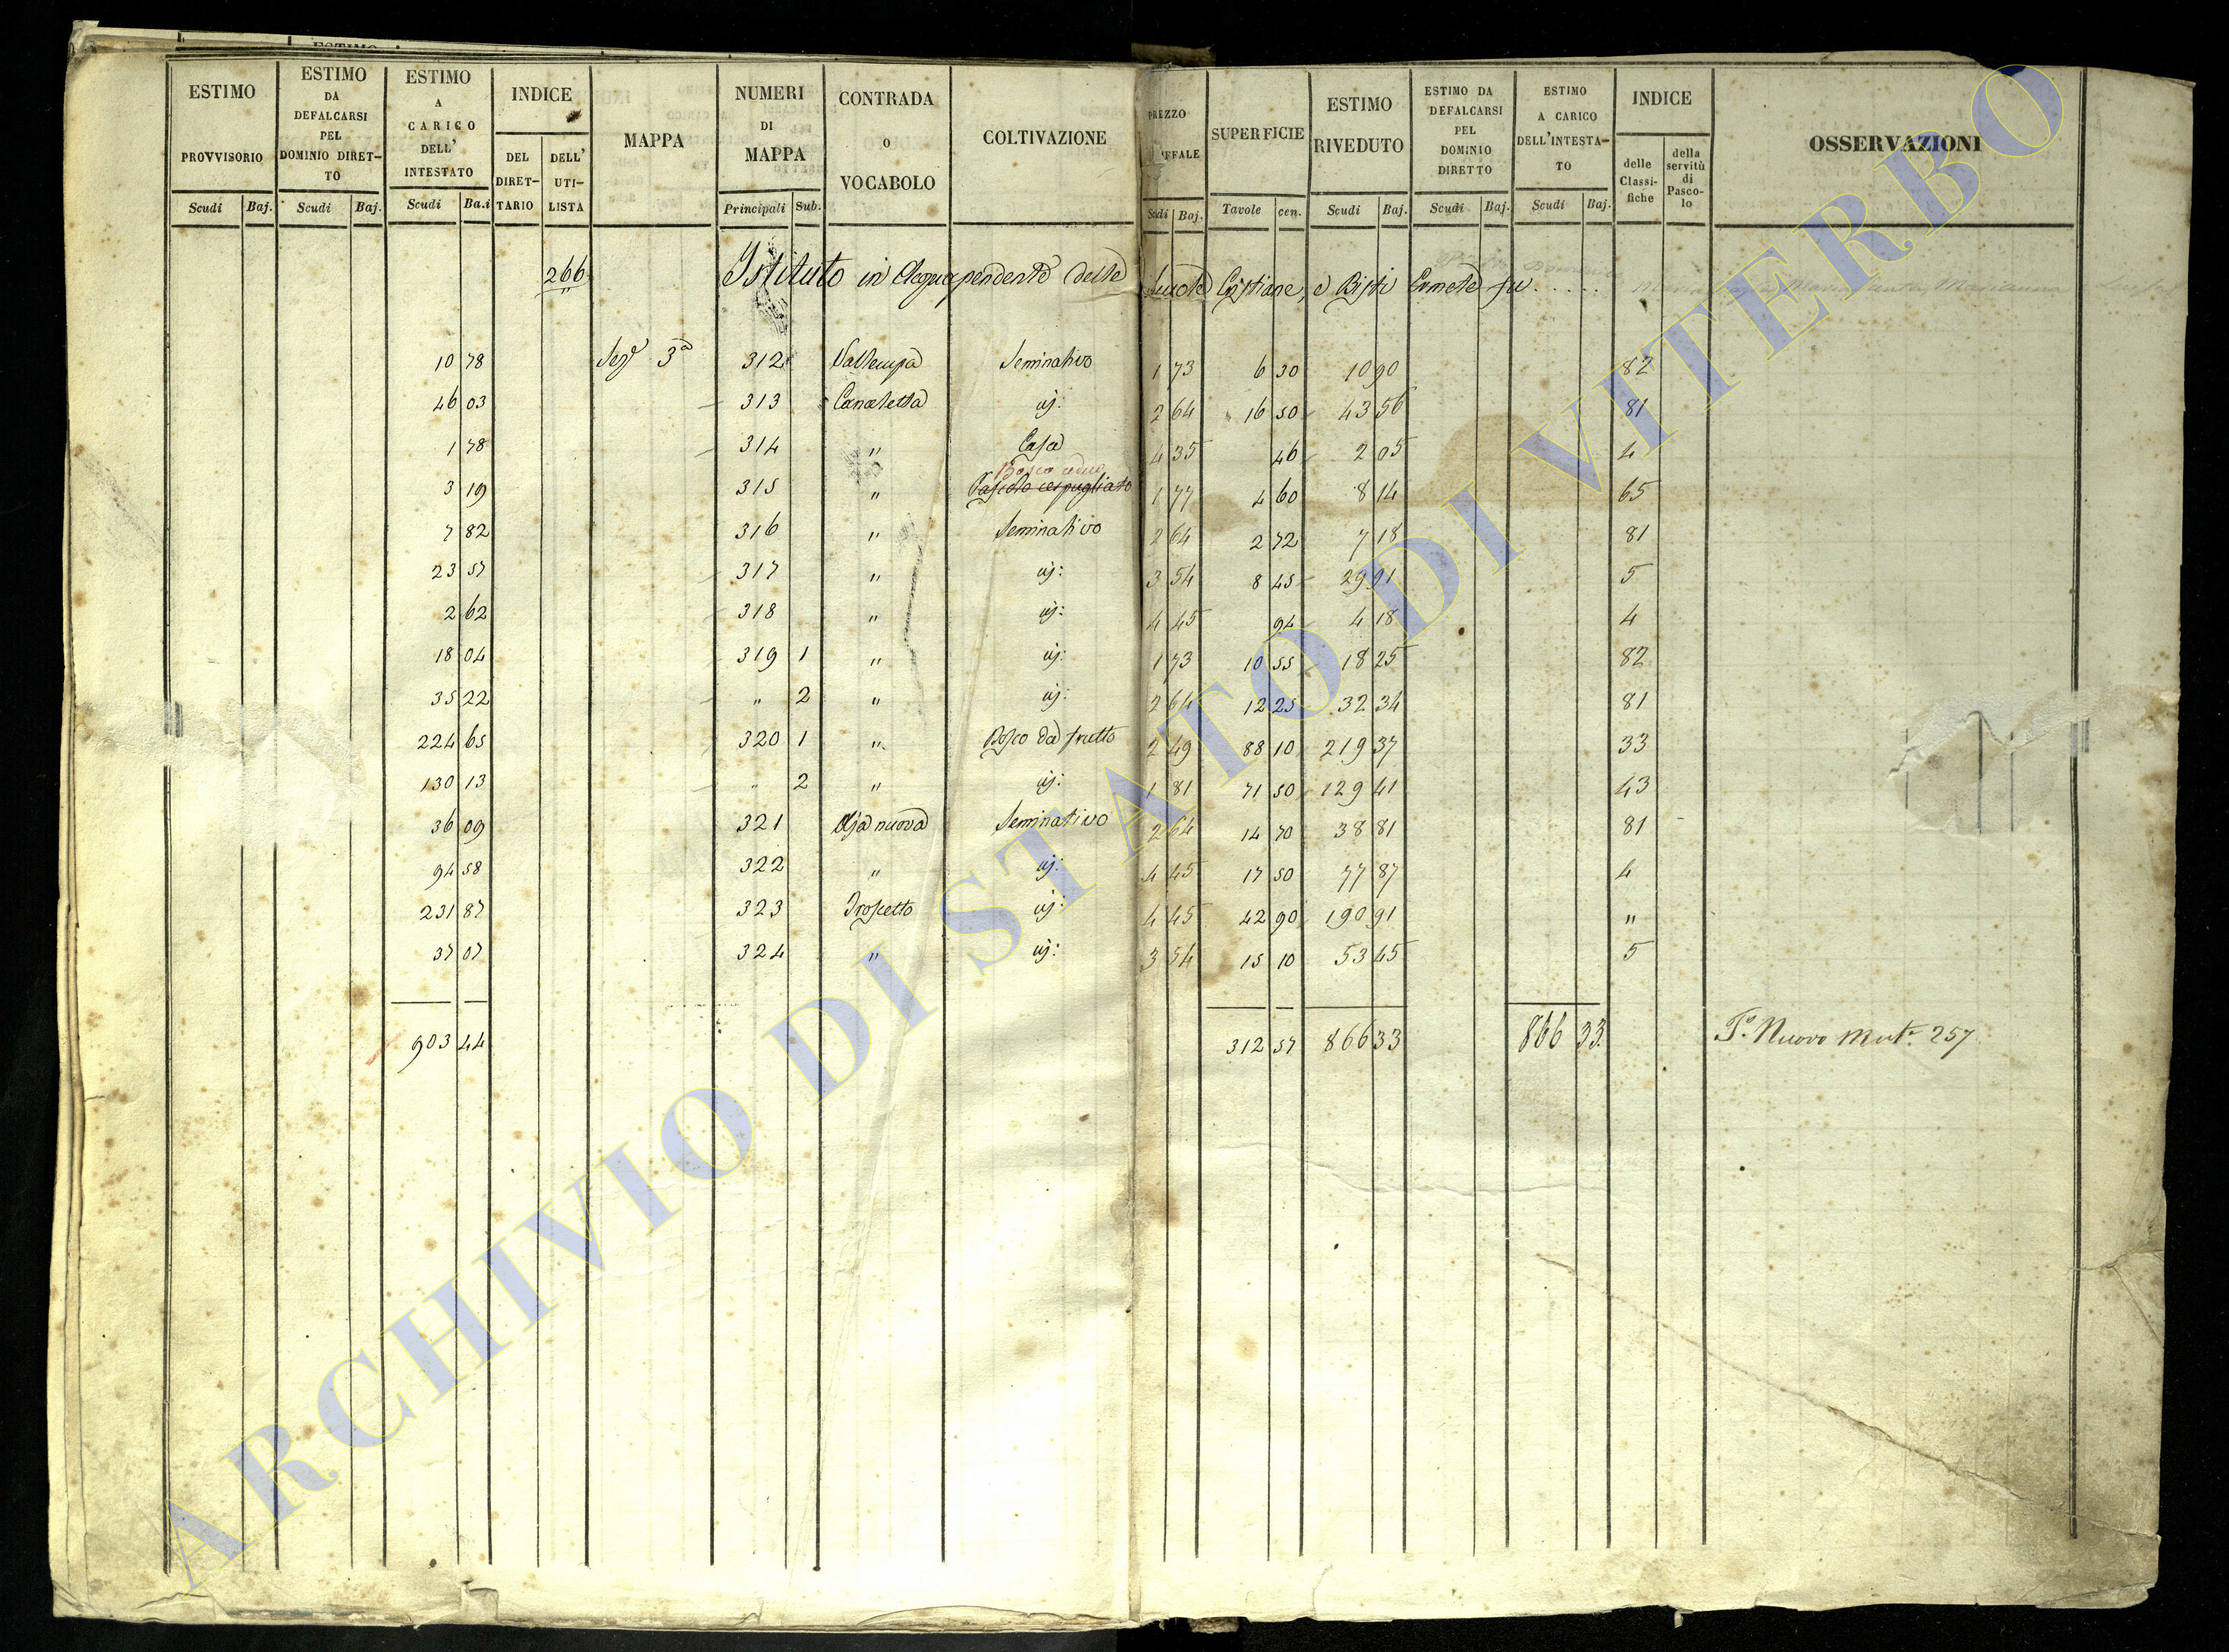 ESTIMO PROVVISORIO
Scudi Baj.
ESTIMO DA DEFALCARSI PEL DOMINIO DIRET- TO
Scudi Baj.
ESTIMO A CARICO DELL' INTESTATO
Scudi Ba.i
INDICE
DEL DIRET- TARIO
DELL' UTI- LISTA
MAPPA
NUMERI DI MAPPA
Principali Sub.
CONTRADA o VOCABOLO
COLTIVAZIONE
PREZZO
Baj.
SUPERFICIE
Tavole cen.
ESTIMO RIVEDUTO
Scudi Baj.
ESTIMO DA DEFALCARSI PEL DOMINIO DIRETTO
Scudi Baj.
ESTIMO A CARICO DELL'INTESTA- TO
Scudi Baj.
INDICE
delle Classi- fiche
della servitù di Pasco- lo
OSSERVAZIONI
266 Istituto in delle e Bisti Ermete fu . . . . .
10 78 Sez.e 3a 312 Vallecupa Seminativo 1 73 6 30 10 90 82
46 03 313 Canaletta ij: 2 64 16 50 43 56 81
1 78 314 " Casa 4 35 46 2 05 4
Bosco ceduo
3 19 315 " Pascolo cespugliato 1 77 4 60 8 14 65
7 82 316 " Seminativo 2 64 2 72 7 18 81
23 57 317 " ij: 3 54 8 45 29 91 5
2 62 318 " ij: 4 45 94 4 18 4
18 04 319 1 " ij: 1 73 10 55 18 25 82
35 22 " 2 " ij: 2 64 12 25 32 34 81
224 65 320 1 " Bosco da frutto 2 49 88 10 219 37 33
130 13 " 2 " ij: 1 81 71 50 129 41 43
36 09 321 Aja nuova Seminativo 2 64 14 70 38 81 81
94 58 322 " ij: 4 45 17 50 77 87 4
231 87 323 Troscetto ij: 4 45 42 90 190 91 "
37 07 324 " ij: 3 54 15 10 53 45 5
903 44 312 57 866 33 866 33 To. Nuovo Mat.e 257
ARCHIVIO DI STATO DI VITERBO